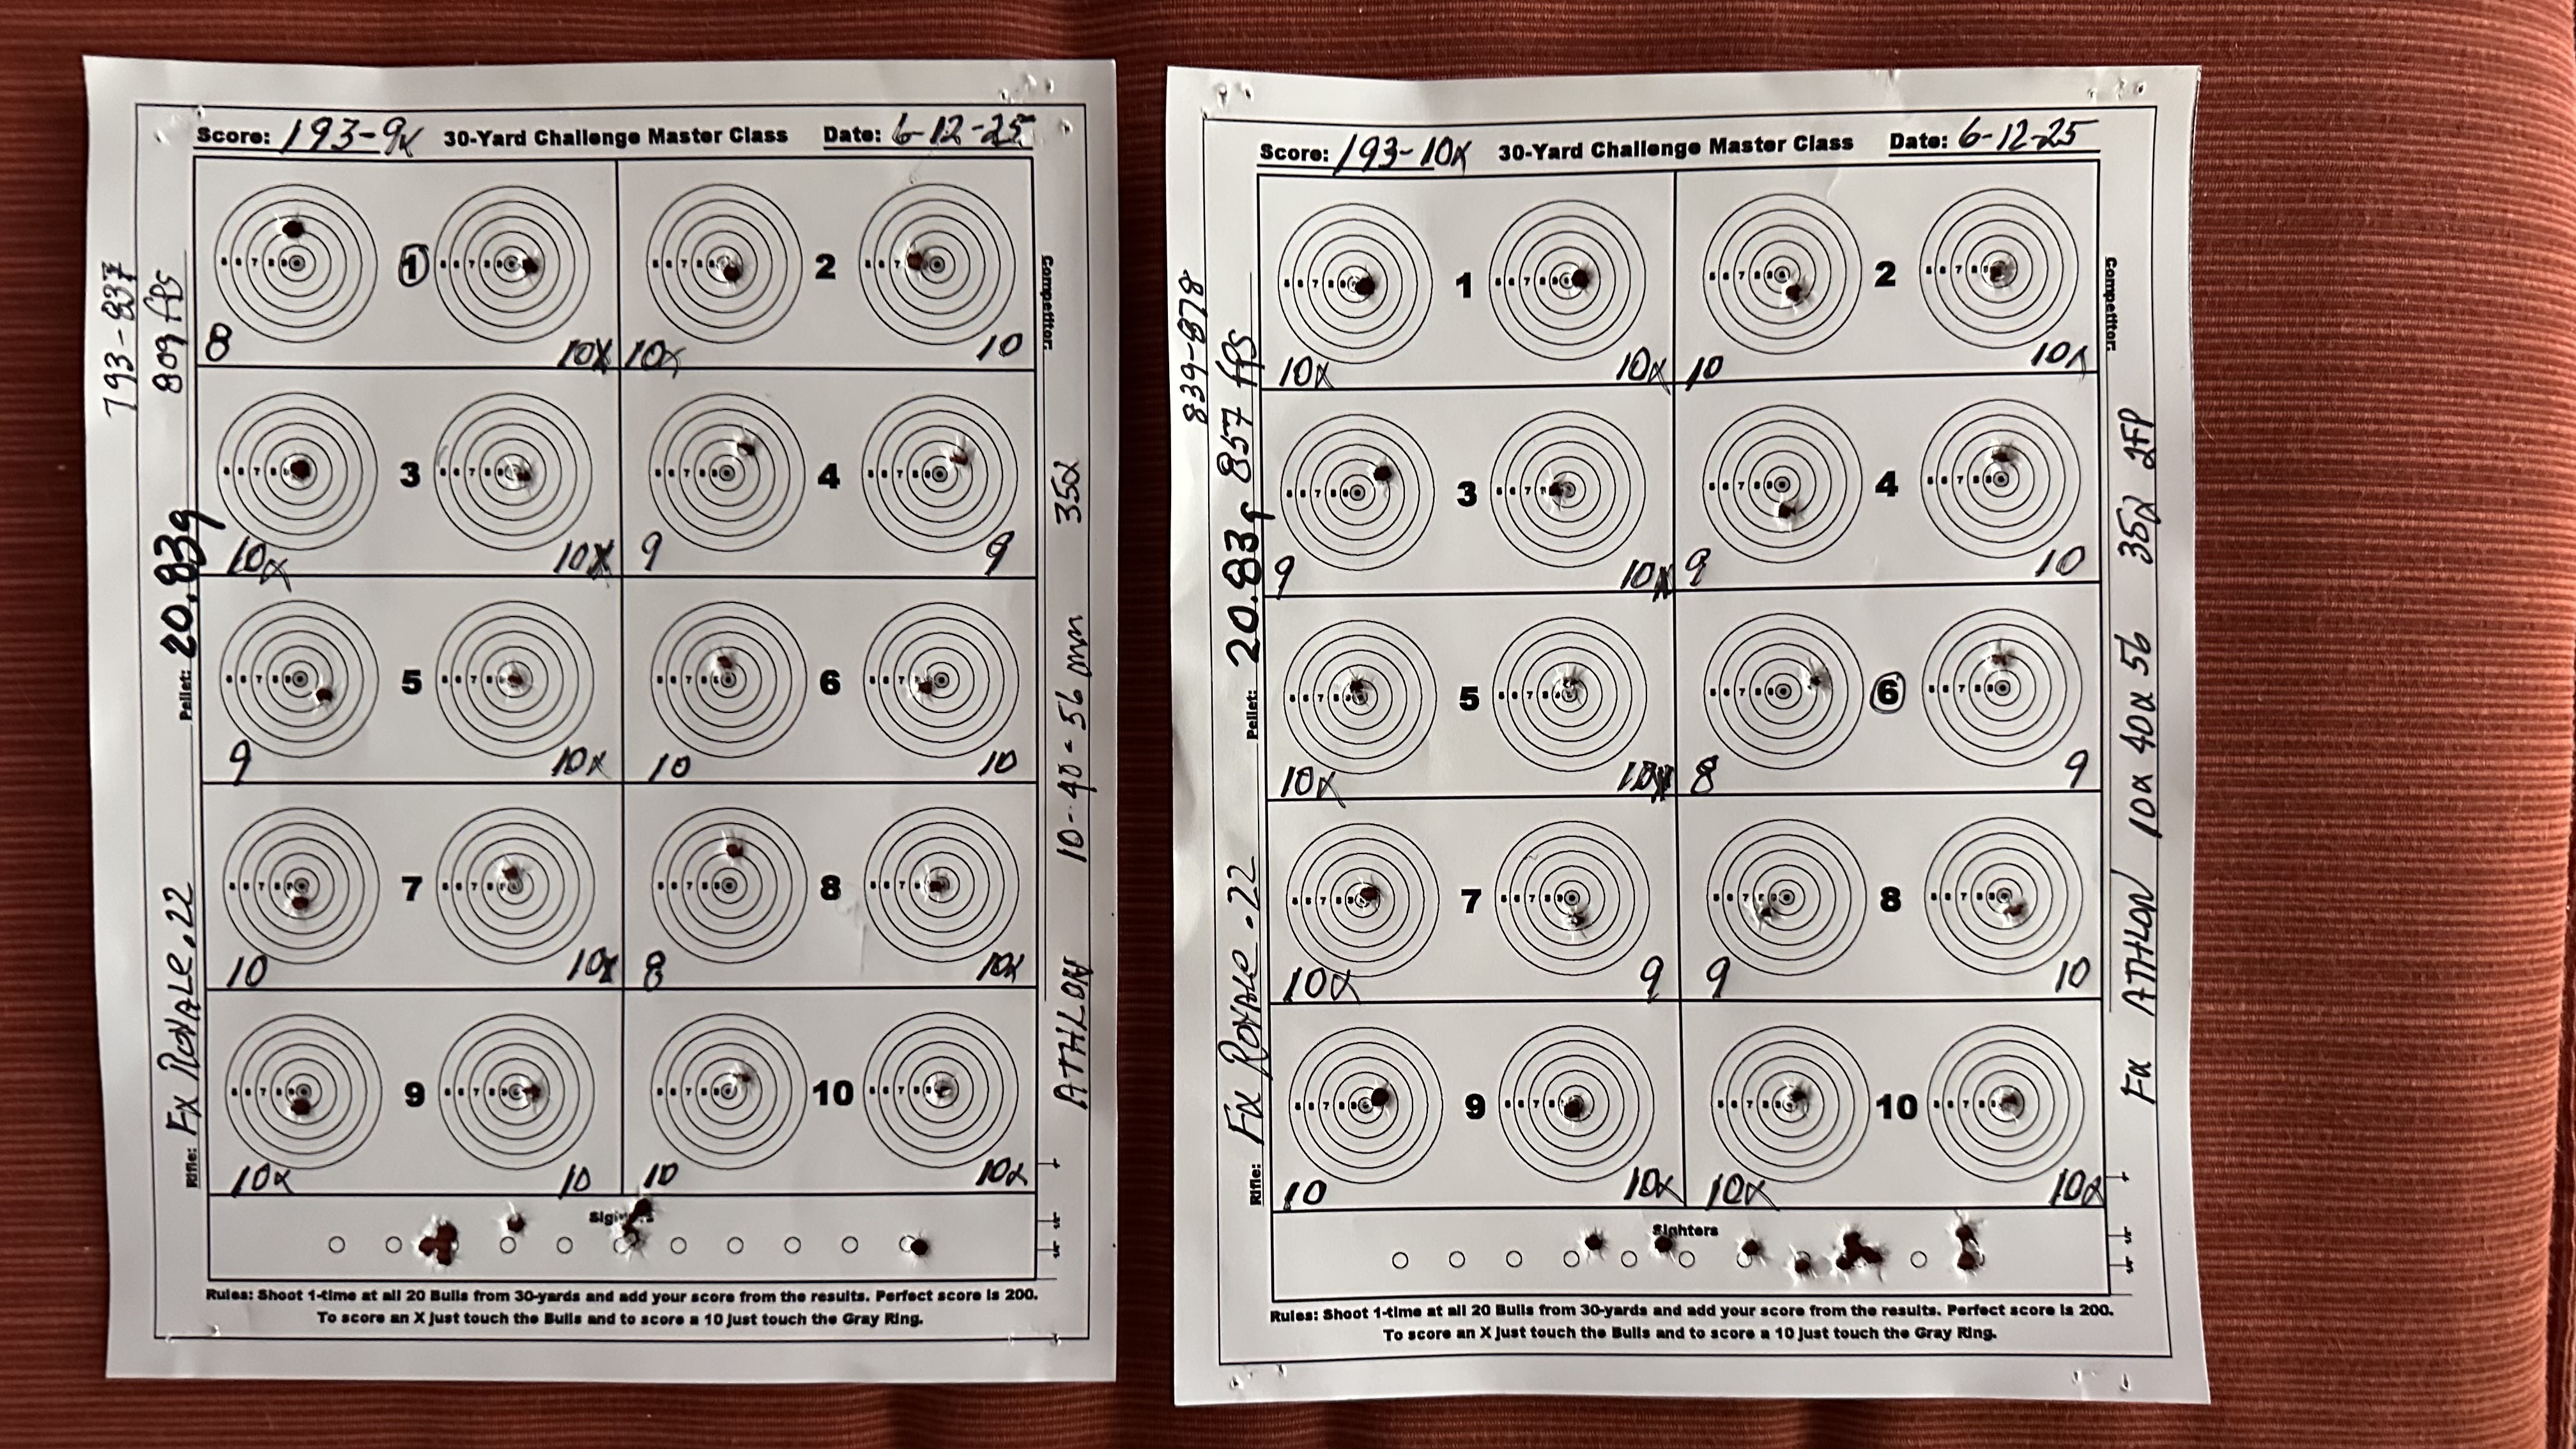 Score: 193-9x 30-Yard Challenge Master Class Date: 6-12-25
793-837
809 fps
Pellet: 20.83g
Rifle: FX ROYALE .22
Competitor:
ATHLON 10-40 x 56 mm 35x
1
8 10x
2
10x 10
3
10x 10x
4
9 9
5
9 10x
6
10 10
7
10 10x
8
8 10x
9
10x 10
10
10 10x
Sighters
Rules: Shoot 1-time at all 20 Bulls from 30-yards and add your score from the results. Perfect score is 200.
To score an X just touch the Bulls and to score a 10 just touch the Gray Ring.
Score: 193-10x 30-Yard Challenge Master Class Date: 6-12-25
839-878
Pellet: 20.83g 857 fps
Rifle: FX ROYALE .22
Competitor:
FX ATHLON 10x 40x 56 35x 2FP
1
10x 10x
2
10 10x
3
9 10x
4
9 10
5
10x 10x
6
8 9
7
10x 9
8
9 10
9
10 10x
10
10x 10x
Sighters
Rules: Shoot 1-time at all 20 Bulls from 30-yards and add your score from the results. Perfect score is 200.
To score an X just touch the Bulls and to score a 10 just touch the Gray Ring.